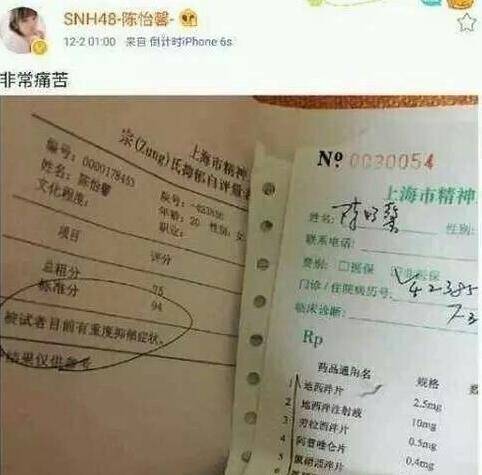 SNH48-陈怡馨-
12-2 01:00 来自 倒计时iPhone 6s
非常痛苦
上海市精神
宗(Zung)氏抑郁自评量表
编号: 0000178453
姓名: 陈怡馨
年龄: 20 性别: 女
文化程度:
职业:
项目 评分
总粗分 75
标准分 94
被试者目前有重度抑郁症状。
结果仅供参考
№ 0030054
上海市精神
姓名: 陈怡馨 性别:
联系电话:
费别: □医保 非医保
门诊/住院病历号:
临床诊断:
Rp
药品通用名 规格
1 地西泮片 2.5mg
2 地西泮注射液 10mg
3 劳拉西泮片 0.5mg
4 阿普唑仑片 0.4mg
5 氯硝西泮片